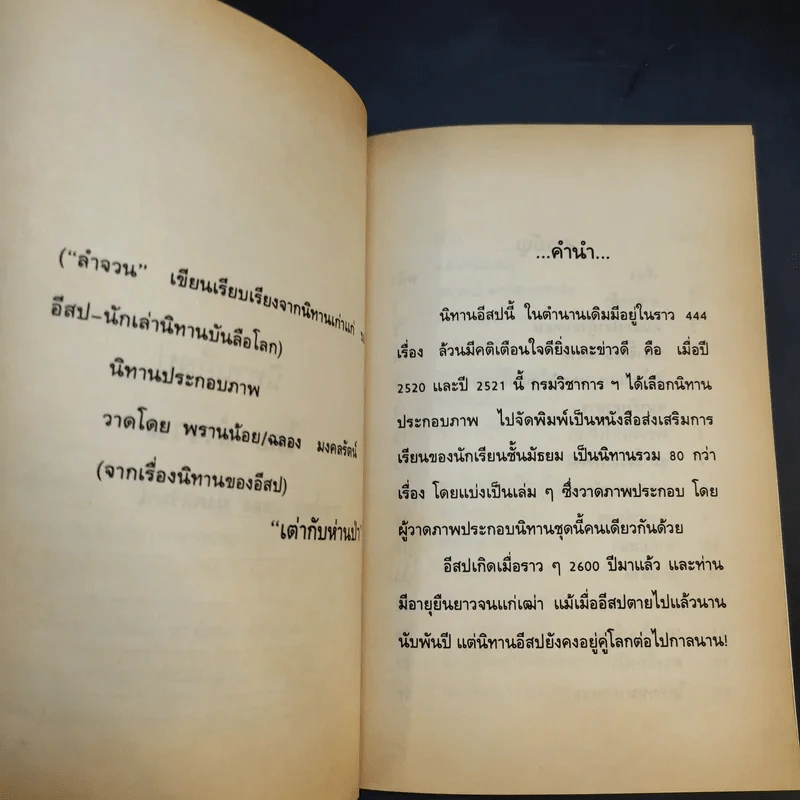 (“ลำจวน” เขียนเรียบเรียงจากนิทานเก่าแก่
อีสป-นักเล่านิทานบันลือโลก)
นิทานประกอบภาพ
วาดโดย พรานน้อย/ฉลอง มงคลรัตน์
(จากเรื่องนิทานของอีสป)
“เต่ากับห่านป่า”
...คำนำ...
นิทานอีสปนี้ ในตำนานเดิมมีอยู่ในราว 444
เรื่อง ล้วนมีคติเตือนใจดียิ่งและข่าวดี คือ เมื่อปี
2520 และปี 2521 นี้ กรมวิชาการ ฯ ได้เลือกนิทาน
ประกอบภาพ ไปจัดพิมพ์เป็นหนังสือส่งเสริมการ
เรียนของนักเรียนชั้นมัธยม เป็นนิทานรวม 80 กว่า
เรื่อง โดยแบ่งเป็นเล่ม ๆ ซึ่งวาดภาพประกอบ โดย
ผู้วาดภาพประกอบนิทานชุดนี้คนเดียวกันด้วย
อีสปเกิดเมื่อราว ๆ 2600 ปีมาแล้ว และท่าน
มีอายุยืนยาวจนแก่เฒ่า แม้เมื่ออีสปตายไปแล้วนาน
นับพันปี แต่นิทานอีสปยังคงอยู่คู่โลกต่อไปกาลนาน!